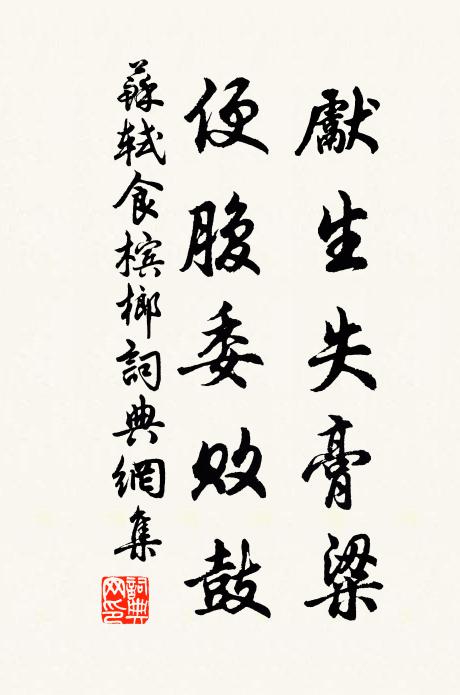 獻生失膏粱
便腹委敗鼓
蘇軾食檳榔詞典網集
詞典
网印